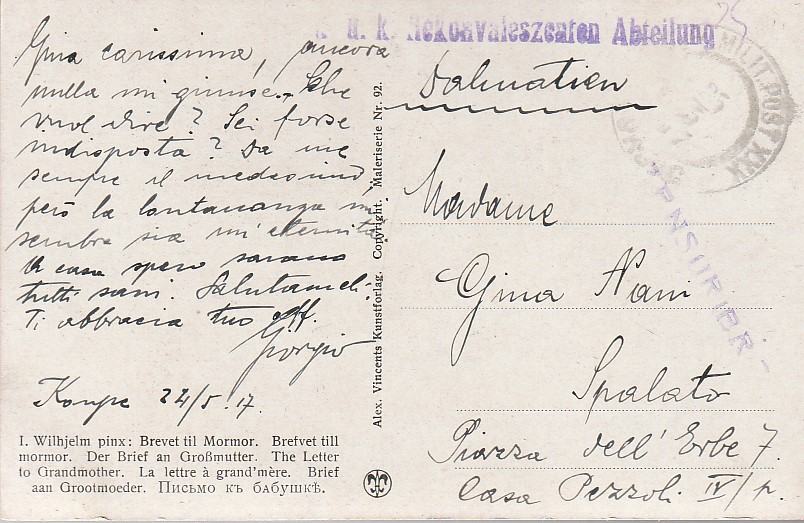 k. u. k. Rekonvaleszenten Abteilung
Gina carissima, ancora
nulla mi giunse. Che
vuol dire? Sei forse
indisposta? Da me
sempre il medesimo,
però la lontananza mi
sembra sia un'eternità.
A casa spero saranno
tutti sani. Salutameli.
Ti abbraccia tuo aff.
Giorgio
24/5.17.
I. Wilhjelm pinx: Brevet til Mormor. Brefvet till
mormor. Der Brief an Großmutter. The Letter
to Grandmother. La lettre à grand'mère. Brief
aan Grootmoeder. Письмо къ бабушкѣ.
Alex. Vincents Kunstforlag. Copyright. Maleriserie Nr. 92.
Dalmatien
MILIT. POST
ZENSURIERT
Madame
Gina Nani
Spalato
Piazza dell'Erbe 7.
Casa Pezzoli IV/p.